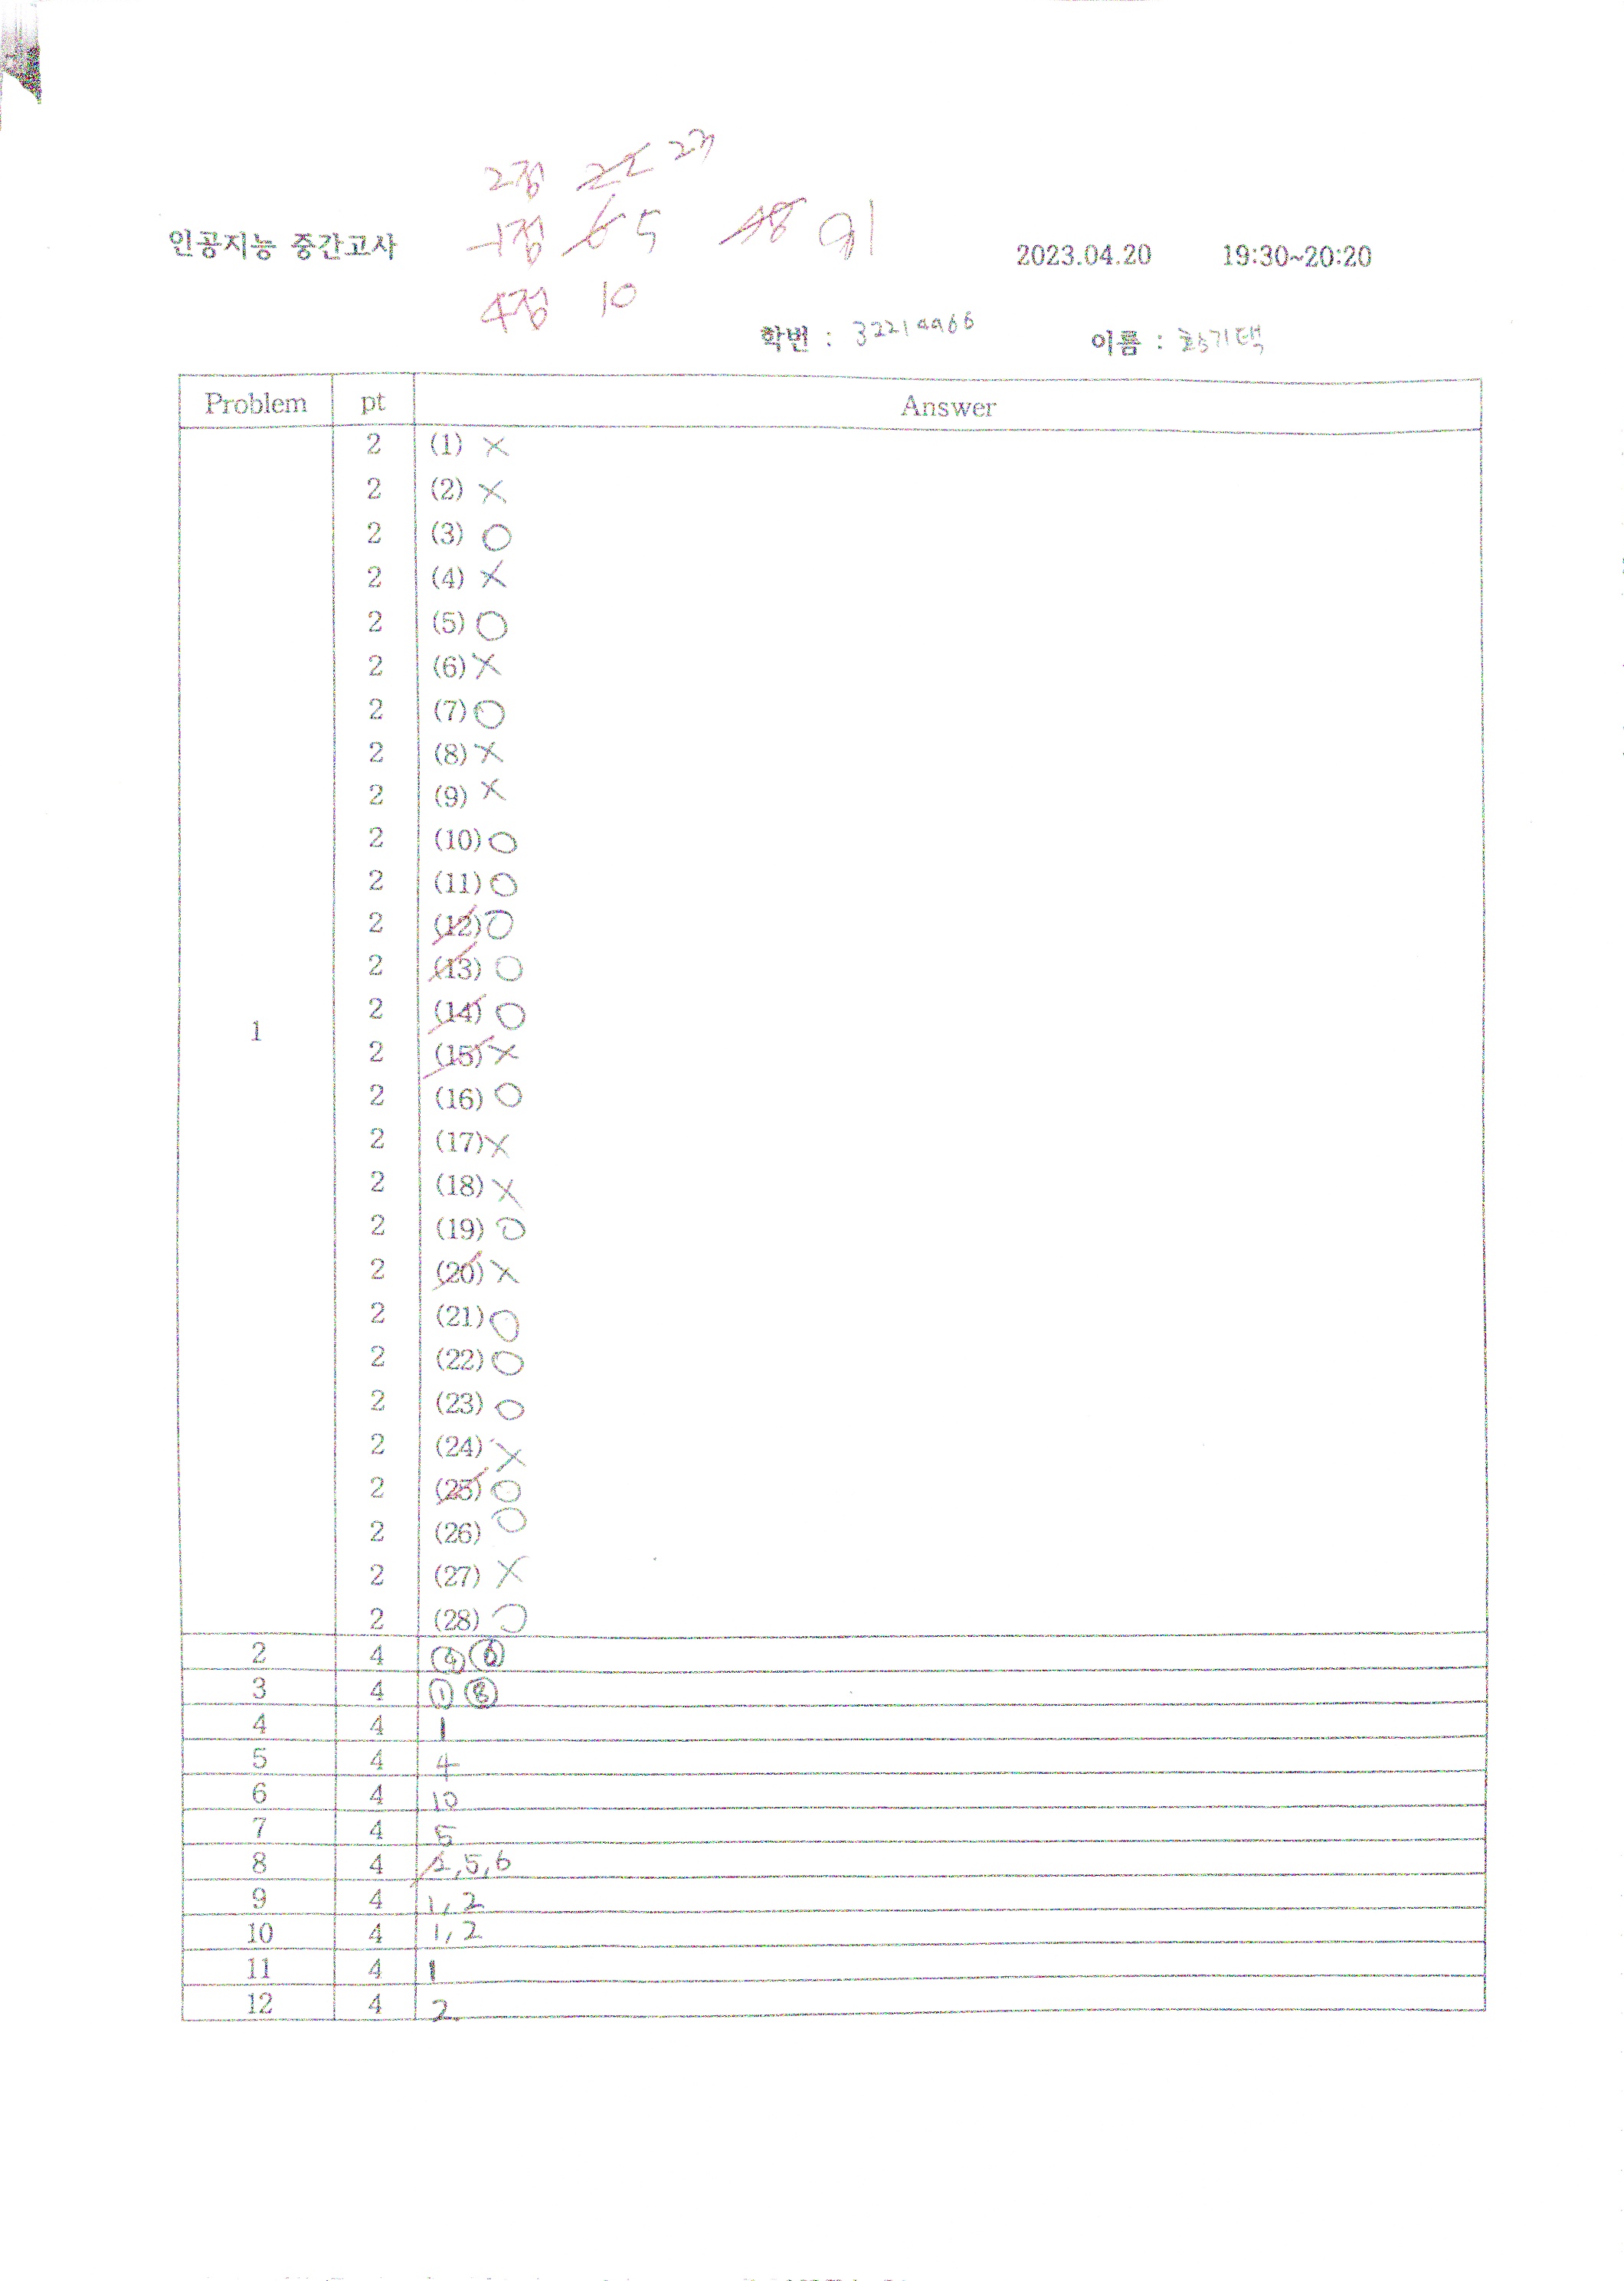 2점 22 23
인공지능 중간고사 -1점 6 5 48 91 2023.04.20 19:30~20:20
4점 10
학번 : 32214966 이름 :
Problem pt Answer
1
2 (1) X
2 (2) X
2 (3) O
2 (4) X
2 (5) O
2 (6) X
2 (7) O
2 (8) X
2 (9) X
2 (10) O
2 (11) O
2 (12) O
2 (13) O
2 (14) O
2 (15) X
2 (16) O
2 (17) X
2 (18) X
2 (19) O
2 (20) X
2 (21) O
2 (22) O
2 (23) O
2 (24) X
2 (25) O
2 (26) O
2 (27) X
2 (28) O
2 4 ④ ⑥
3 4 ① ⑧
4 4 1
5 4 4
6 4 10
7 4 5
8 4 1,5,6
9 4 1,2
10 4 1,2
11 4 1
12 4 2.